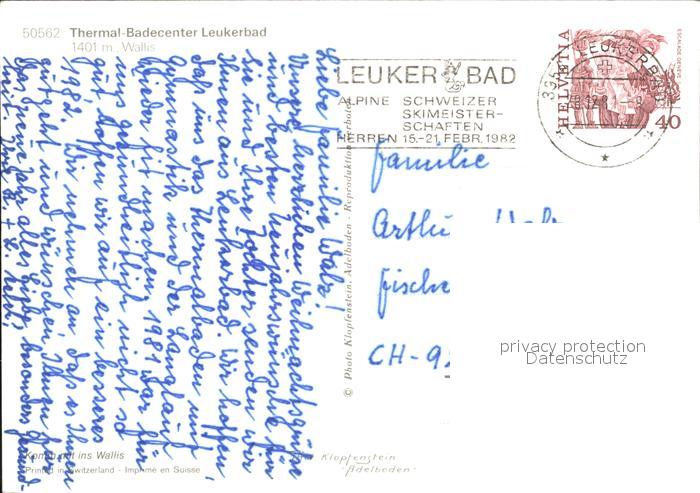 50562 Thermal-Badecenter Leukerbad
1401 m, Wallis
Liebe Familie Walz!
Unsere herzlichen Weihnachtsgrüsse
und besten Neujahrswünsche für
Sie und Ihre Tochter senden wir
Ihnen aus Leukerbad. Wir hoffen,
daß uns das Thermalbaden mit
Gymnastik und der Langlauf
wieder fit machen. 1981 war für
uns gesundheitlich nicht so
gut. Hoffen wir auf ein besseres
1982. Wir nehmen an, daß es Ihnen
gut geht und wünschen Ihnen für
das neue Jahr alles Liebe, besonders Gesund-
heit. Ihre
Kommt mit ins Wallis
Printed in Switzerland - Imprimé en Suisse
© Photo Klopfenstein, Adelboden - Reproduktion verboten
Klopfenstein
Adelboden
LEUKERBAD
ALPINE SCHWEIZER
SKIMEISTER-
SCHAFTEN
HERREN 15.-21. FEBR. 1982
LEUKERBAD
HELVETIA
ESCALADE GENÈVE
40
Familie
CH-9
privacy protection
Datenschutz